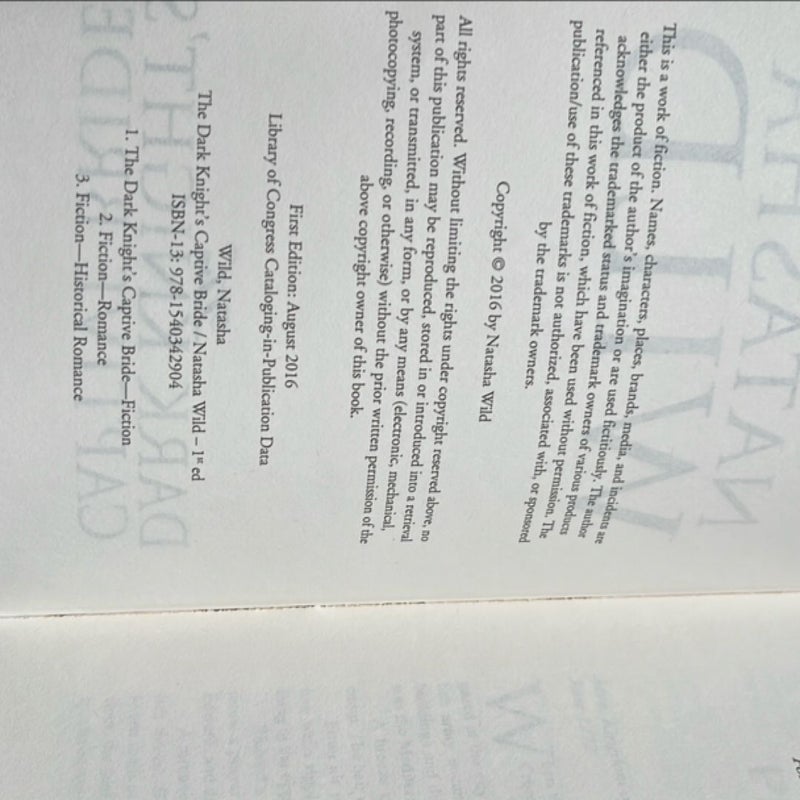 This is a work of fiction. Names, characters, places, brands, media, and incidents are
either the product of the author's imagination or are used fictitiously. The author
acknowledges the trademarked status and trademark owners of various products
referenced in this work of fiction, which have been used without permission. The
publication/use of these trademarks is not authorized, associated with, or sponsored
by the trademark owners.
Copyright © 2016 by Natasha Wild
All rights reserved. Without limiting the rights under copyright reserved above, no
part of this publication may be reproduced, stored in or introduced into a retrieval
system, or transmitted, in any form, or by any means (electronic, mechanical,
photocopying, recording, or otherwise) without the prior written permission of the
above copyright owner of this book.
First Edition: August 2016
Library of Congress Cataloging-in-Publication Data
Wild, Natasha
The Dark Knight's Captive Bride / Natasha Wild – 1st ed
ISBN-13: 978-1540342904
1. The Dark Knight's Captive Bride—Fiction
2. Fiction—Romance
3. Fiction—Historical Romance